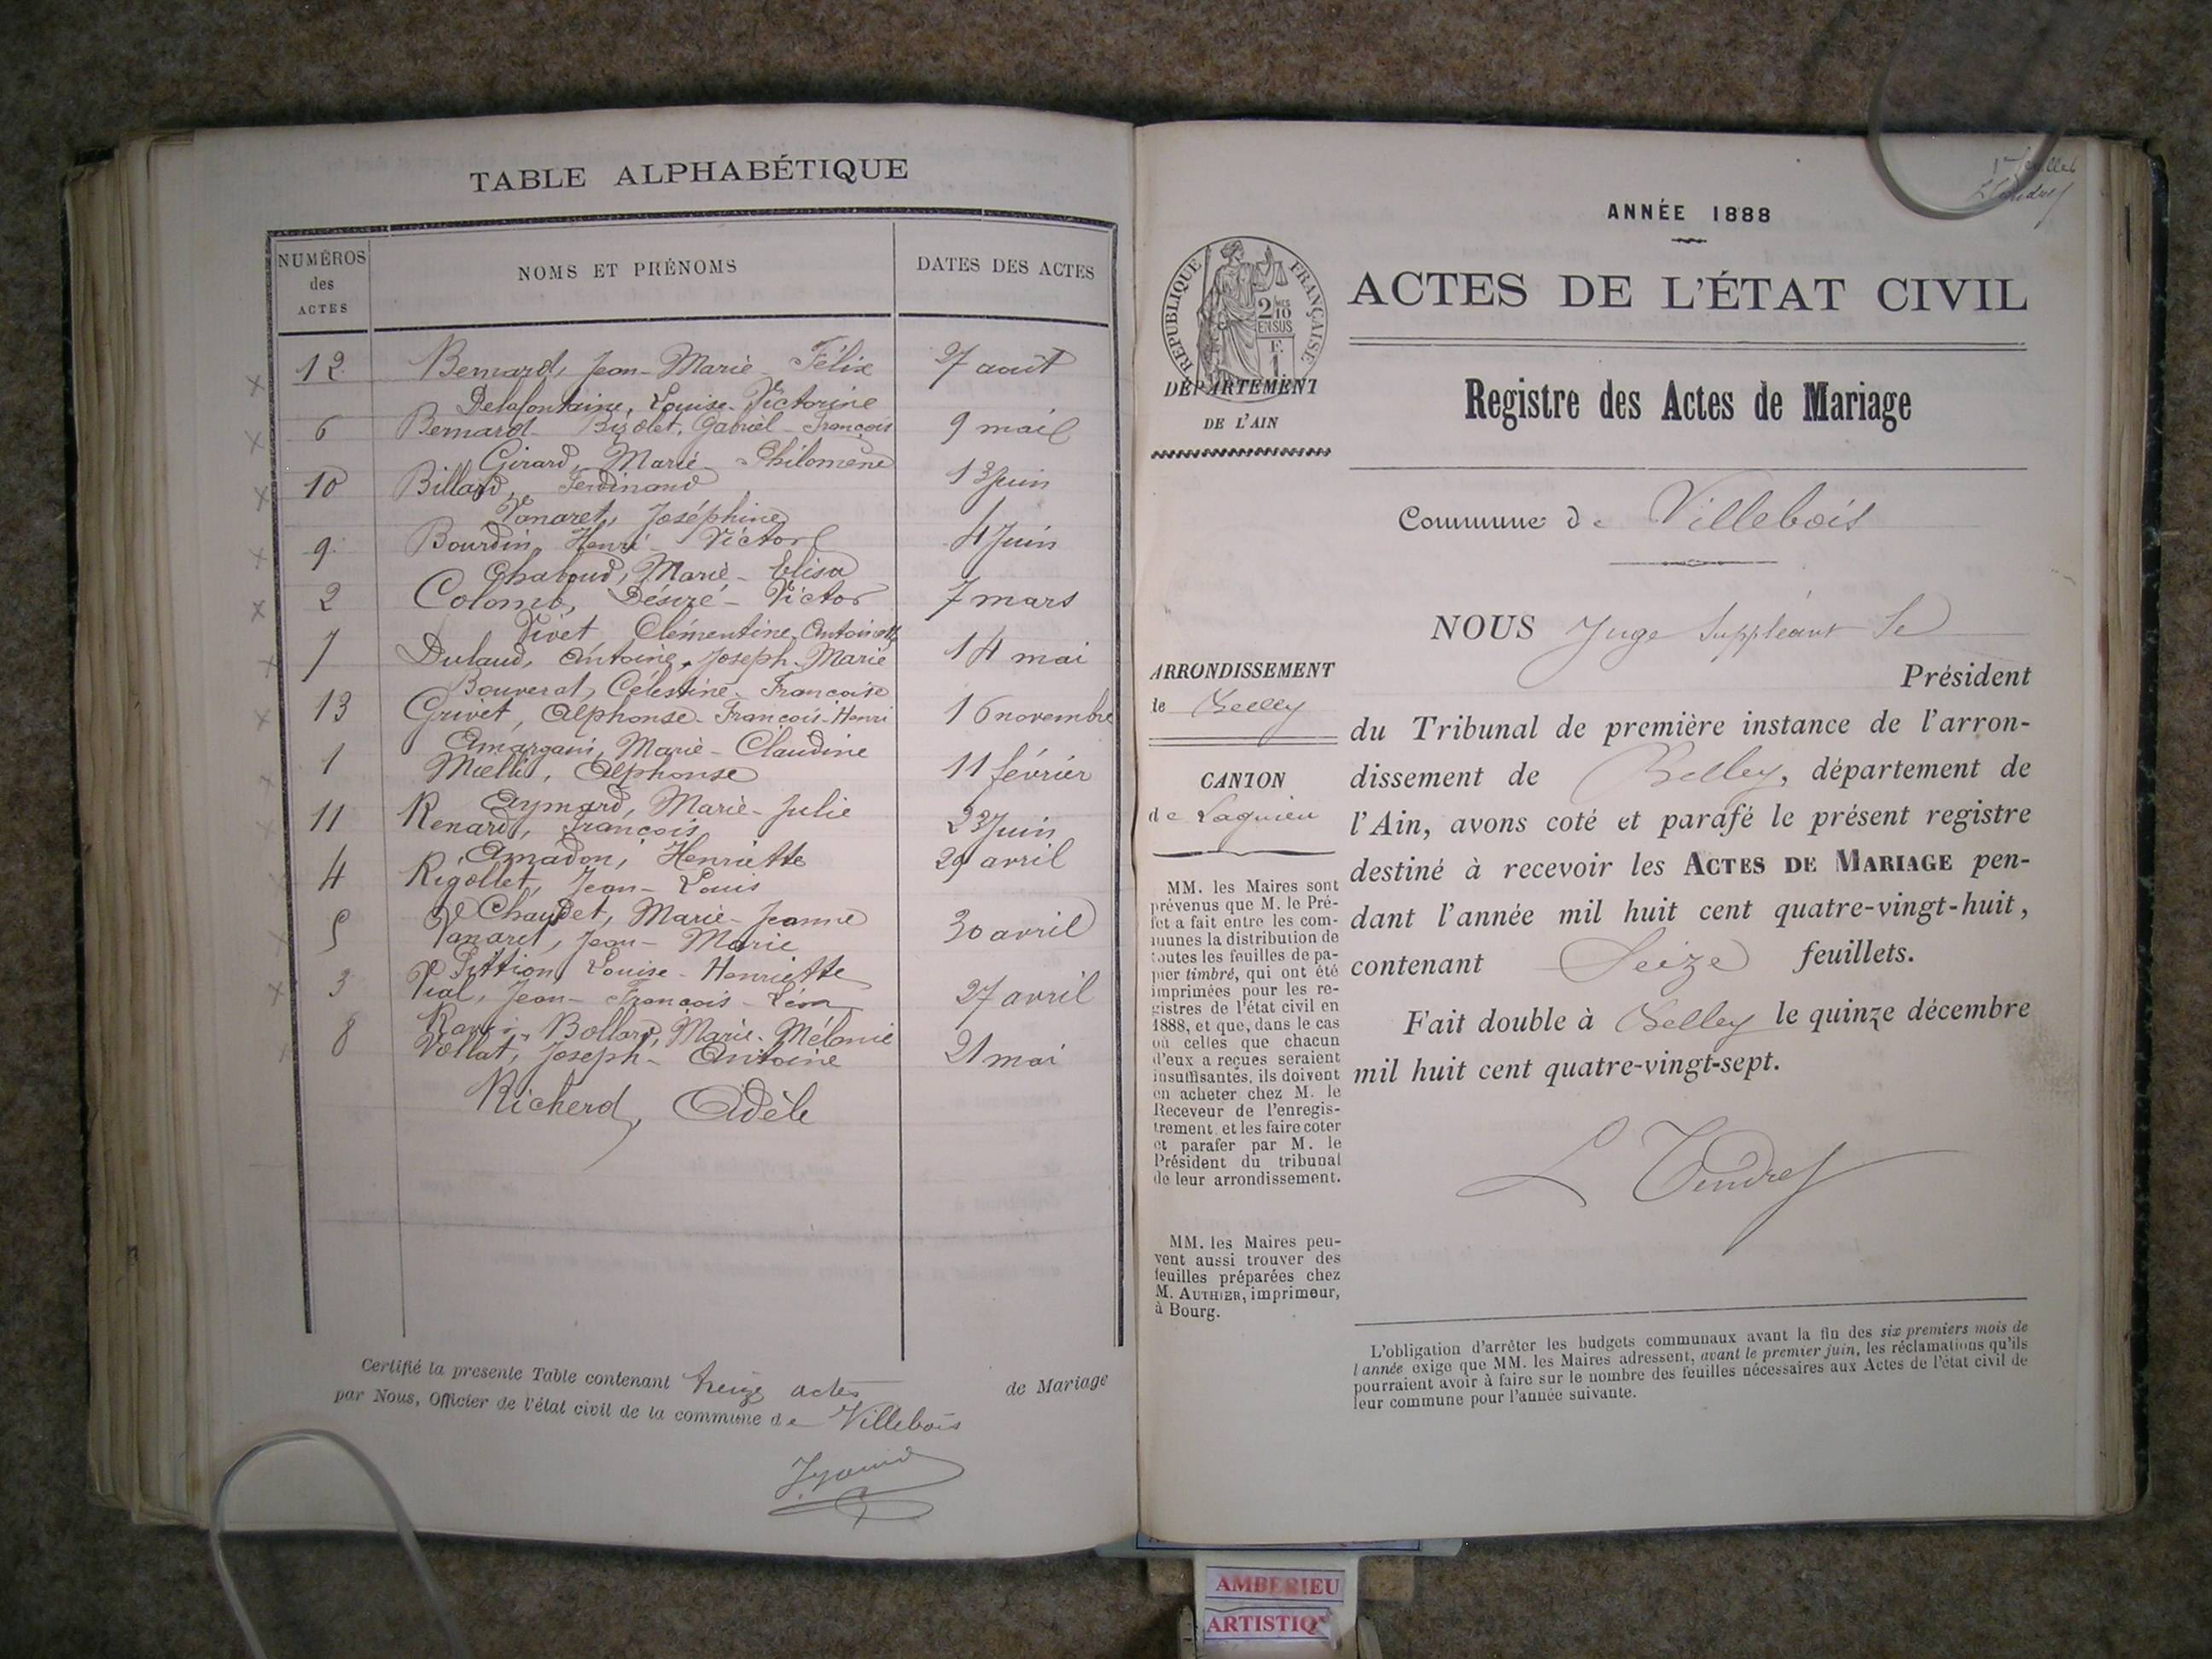 TABLE ALPHABÉTIQUE
NUMÉROS des ACTES NOMS ET PRÉNOMS DATES DES ACTES
12 Bernard, Jean-Marie-Félix 27 août
Delafontaine, Louise-Victorine
6 Bernard-Bigolet, Gabriel-François 9 mai
Girard, Marie-Philomène
10 Billard, Ferdinand 13 Juin
Vanaret, Joséphine
9 Bourdin, Henri-Victor 4 Juin
Chaboud, Marie-Elisa
2 Colomb, Désiré-Victor 7 mars
Vivet, Clémentine, Antoinette
7 Dulaud, Antoine, Joseph-Marie 14 mai
Bouverat, Célestine-Françoise
13 Grivet, Alphonse-François-Henri 16 novembre
Marie-Claudine
1 Alphonse 11 février
Aymard, Marie-Julie
11 Renard, François 23 Juin
Amadon, Henriette
4 Rigollet, Jean-Louis 29 avril
Chaudet, Marie-Jeanne
5 Vanaret, Jean-Marie 30 avril
Louise-Henriette
3 Vial, Jean-François-Léon 27 avril
Bollard, Marie-Mélanie
8 Vollat, Joseph-Antoine 21 mai
Richerd, Adèle
Certifié la presente Table contenant treize actes de Mariage
par Nous, Officier de l'état civil de la commune de Villebois
1er feuillet
ANNÉE 1888
ACTES DE L'ÉTAT CIVIL
RÉPUBLIQUE FRANÇAISE
2/10 EN SUS
F. 1
DÉPARTEMENT
DE L'AIN
Registre des Actes de Mariage
Commune de Villebois
ARRONDISSEMENT
de Belley
CANTON
de Lagnieu
MM. les Maires sont
prévenus que M. le Pré-
fet a fait entre les com-
munes la distribution de
toutes les feuilles de pa-
pier timbré, qui ont été
imprimées pour les re-
gistres de l'état civil en
1888, et que, dans le cas
où celles que chacun
d'eux a reçues seraient
insuffisantes, ils doivent
en acheter chez M. le
Receveur de l'enregis-
trement et les faire coter
et parafer par M. le
Président du tribunal
de leur arrondissement.
MM. les Maires peu-
vent aussi trouver des
feuilles préparées chez
M. AUTHIER, imprimeur,
à Bourg.
NOUS Juge Suppléant le
Président
du Tribunal de première instance de l'arron-
dissement de Belley, département de
l'Ain, avons coté et parafé le présent registre
destiné à recevoir les ACTES DE MARIAGE pen-
dant l'année mil huit cent quatre-vingt-huit,
contenant Seize feuillets.
Fait double à Belley le quinze décembre
mil huit cent quatre-vingt-sept.
L'obligation d'arrêter les budgets communaux avant la fin des six premiers mois de
l'année exige que MM. les Maires adressent, avant le premier juin, les réclamations qu'ils
pourraient avoir à faire sur le nombre des feuilles nécessaires aux Actes de l'état civil de
leur commune pour l'année suivante.
AMBERIEU
ARTISTIQ